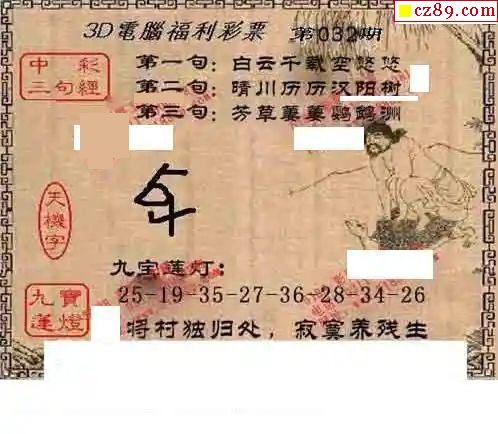 cz89.com
3D電腦福利彩票 第032期
中彩
三句經
第一句:白云千载空悠悠
第二句:晴川历历汉阳树
第三句:芳草萋萋鹦鹉洲
天機字
九宝莲灯:
九寶蓮燈
25-19-35-27-36-28-34-26
将村独归处,寂寞养残生